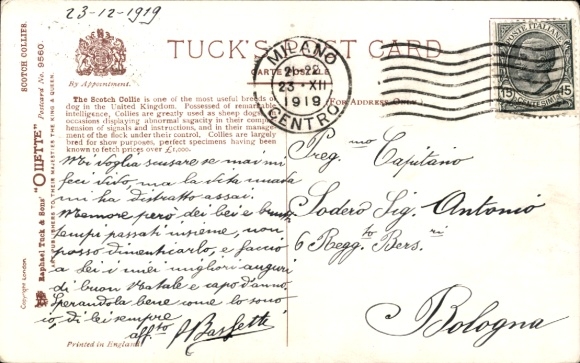 23-12-1919
TUCK'S POST CARD
By Appointment.
CARTE POSTALE
FOR ADDRESS ONLY
MILANO
21-22
23·XII
1919
CENTRO
POSTE ITALIANE
15 CENTESIMI 15
SCOTCH COLLIES.
Postcard No. 9560.
Raphael Tuck & Sons' "OILETTE"
ART PUBLISHERS TO THEIR MAJESTIES THE KING & QUEEN.
Copyright London.
The Scotch Collie is one of the most useful breeds of
dog in the United Kingdom. Possessed of remarkable
intelligence, Collies are greatly used as sheep dogs, on
occasions displaying abnormal sagacity in their compre-
hension of signals and instructions, and in their manage-
ment of the flock under their control, Collies are largely
bred for show purposes, perfect specimens having been
known to fetch prices over £1,000.
Mi voglia scusare se mai mi
feci vivo, ma la vita
mi ha distratto assai.
Memore però dei bei e brutti
tempi passati insieme, non
posso dimenticarlo, e faccio
a Lei i miei migliori auguri
di buon Natale e capo d'anno.
Sperandola bene come lo sono
io, di lei sempre
aff.to Bassetti
Printed in England.
Preg.mo Capitano
Sodero Sig. Antonio
6 Regg.to Bers.ri
Bologna